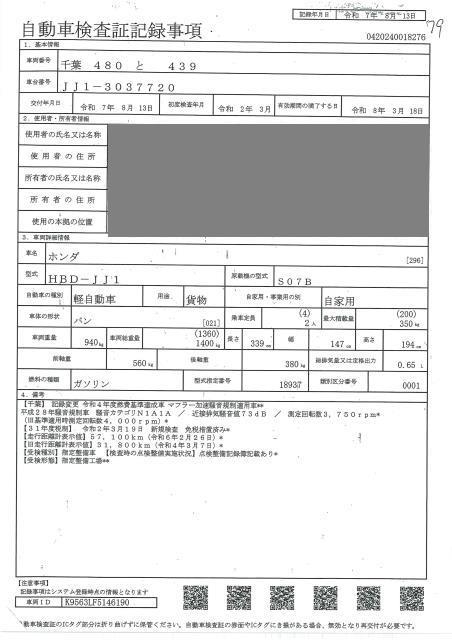 記録年月日 令和 7年 8月 13日
79
自動車検査証記録事項
0420240018276
1. 基本情報
車両番号 千葉 480 と 439
車台番号 JJ1-3037720
交付年月日 令和 7年 8月 13日 初度検査年月 令和 2年 3月 有効期間の満了する日 令和 8年 3月 18日
2. 使用者・所有者情報
使用者の氏名又は名称
使用者の住所
所有者の氏名又は名称
所有者の住所
使用の本拠の位置
3. 車両詳細情報
車名 ホンダ [296]
型式 HBD-JJ1 原動機の型式 S07B
自動車の種別 軽自動車 用途 貨物 自家用・事業用の別 自家用
車体の形状 バン [021] 乗車定員 (4) 2人 最大積載量 (200) 350kg
車両重量 940kg 車両総重量 (1360) 1400kg 長さ 339cm 幅 147cm 高さ 194cm
前軸重 560kg 後軸重 380kg 総排気量又は定格出力 0.65 L
燃料の種類 ガソリン 型式指定番号 18937 類別区分番号 0001
4. 備考
【千葉】 記録変更 令和4年度燃費基準達成車 マフラー加速騒音規制適用車**
平成28年騒音規制車 騒音カテゴリN1A1A ／ 近接排気騒音値73dB ／ 測定回転数3,750rpm*
(旧基準適用時測定回転数4,000rpm)*
【31年度税制】 令和2年3月19日 新規検査 免税措置済み*
【走行距離計表示値】57,100km(令和6年2月26日)*
【旧走行距離計表示値】31,800km(令和4年3月7日)*
【受検種別】指定整備車 【検査時の点検整備実施状況】点検整備記録簿記載あり*
【受検形態】指定整備工場**
【注意事項】
記録事項はシステム登録時点の情報となります
車両ID K9563LF5146190
自動車検査証のICタグ部分は折り曲げずに保管ください。自動車検査証の券面やICタグにき損がある場合、無効となり再交付が必要です。